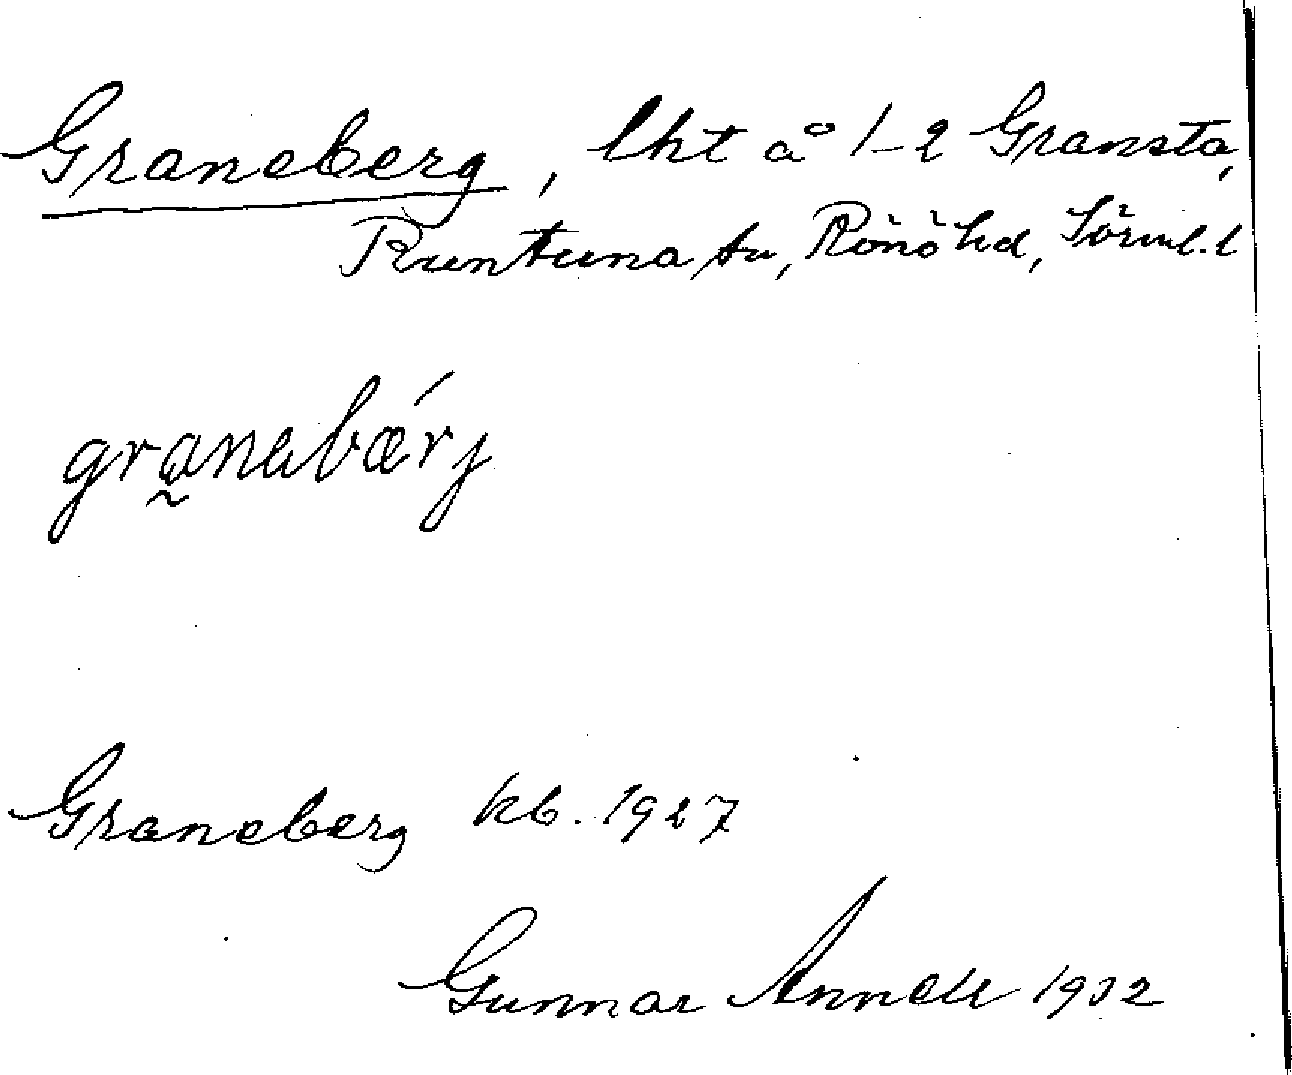 Graneberg, lht å 1-2 Gransta,
Runtuna sn, Rönö hd, Sörml. l
gra̰nabǽrj
Graneberg kb. 1927
Gunnar Annell 1932